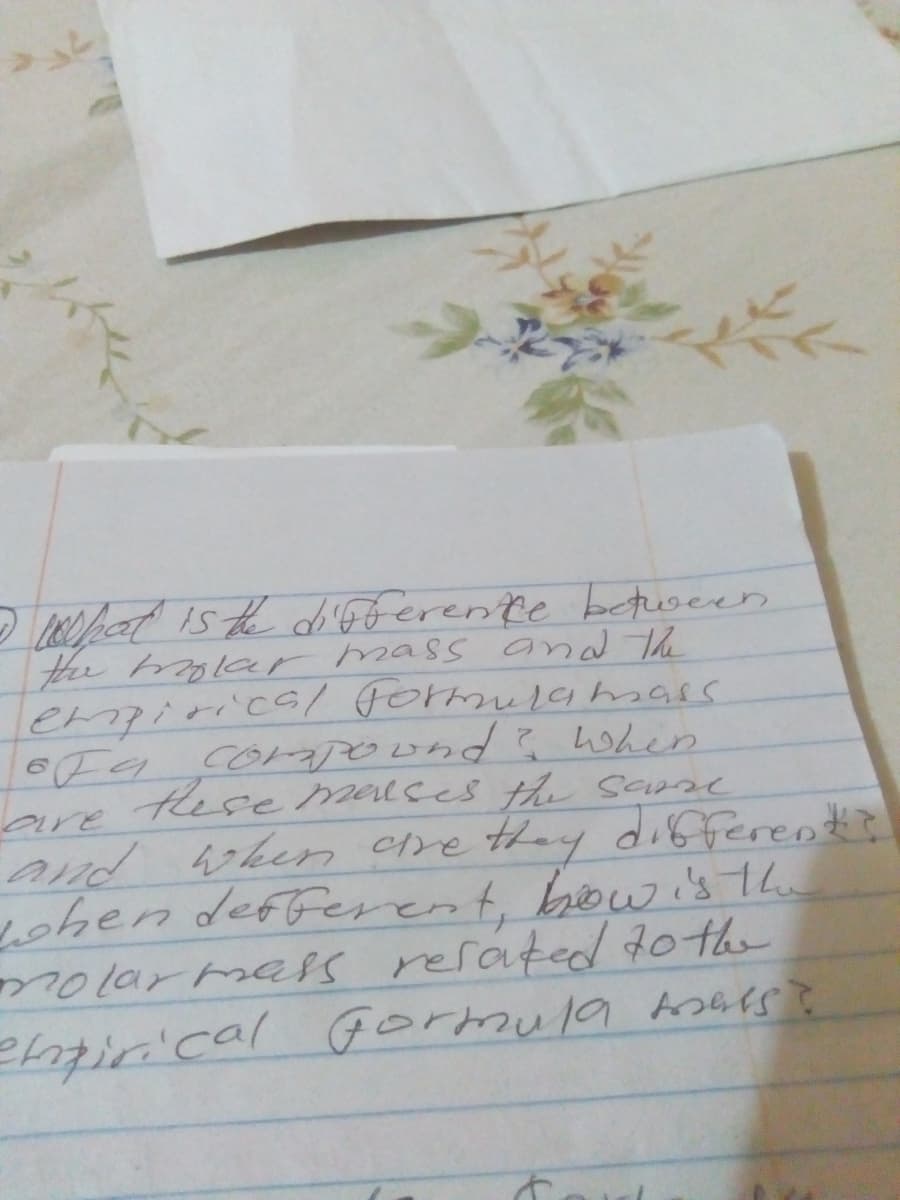 What is the difference between
the molar mass and the
empirical formula mass
of a compound? When
are these masses the same
and when are they different?
when defferent, how is the
molar mass related to the
empirical formula mass?